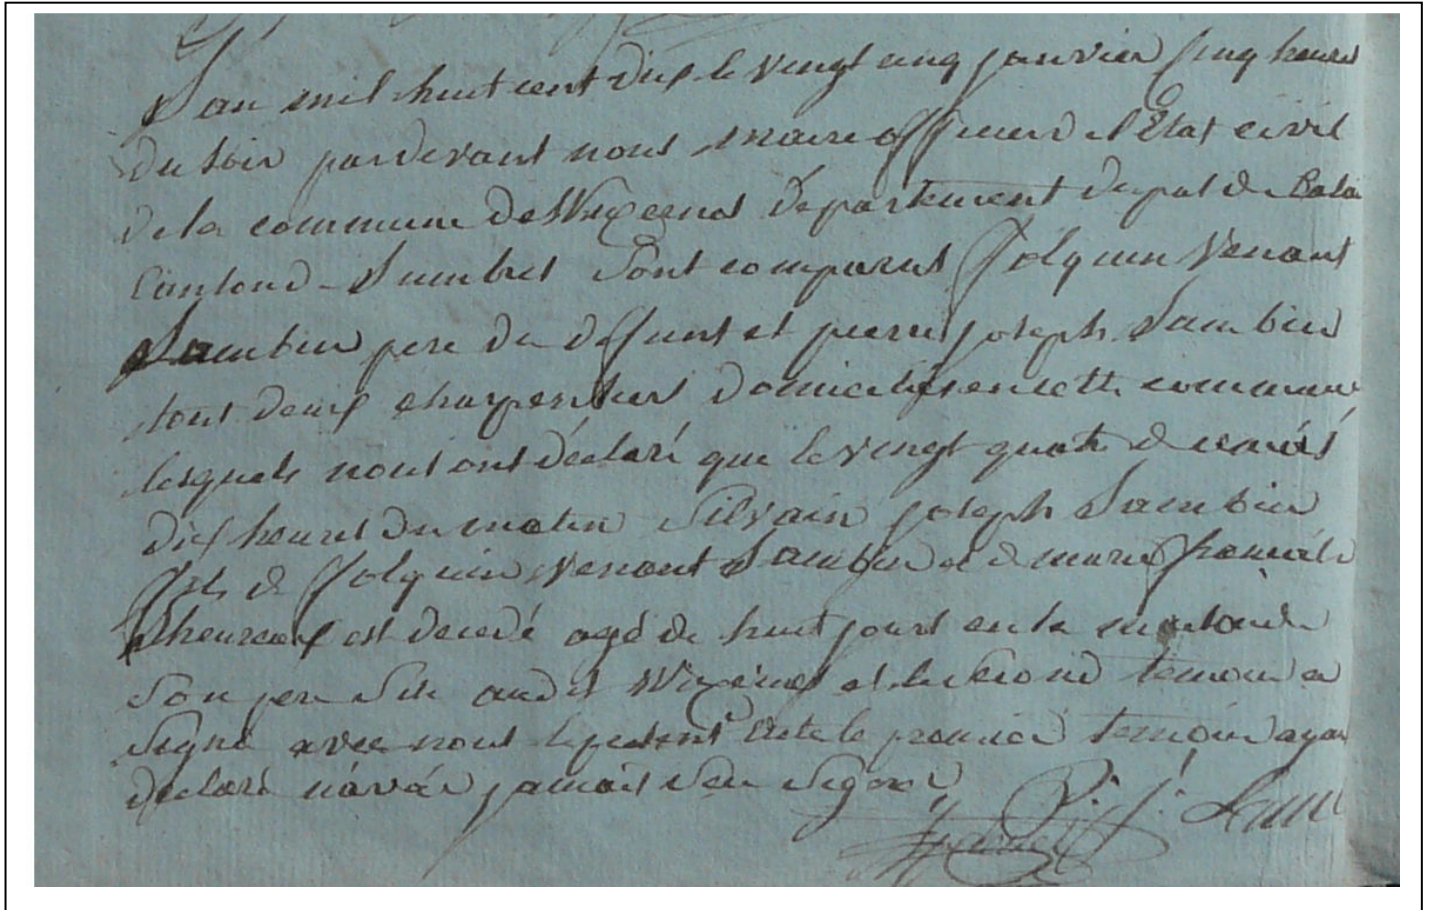 L'an mil huit cent dix le vingt cinq janvier cinq heures
du soir pardevant nous maire officier d l'Etat civil
de la commune de Wizernes departement du pas de Calai
Canton d Lumbres sont comparus Folquin Venant
Lambin pere du deffunt et pierre joseph Lambin
tout deux charpentiers domiciliés en cette commune
lesquels nous ont déclaré que le vingt quatr de ce mois
dix heures du matin Silvain joseph Lambin
fils de Folquin Venant Lambin et de marie francoise
est decedé agé de huit jours en la maison de
son pere sise audit Wizernes et le second temoin a
signé avec nous le present acte le premier temoin ayan
declaré n'avoir jamais seu signer
P. J. Lam